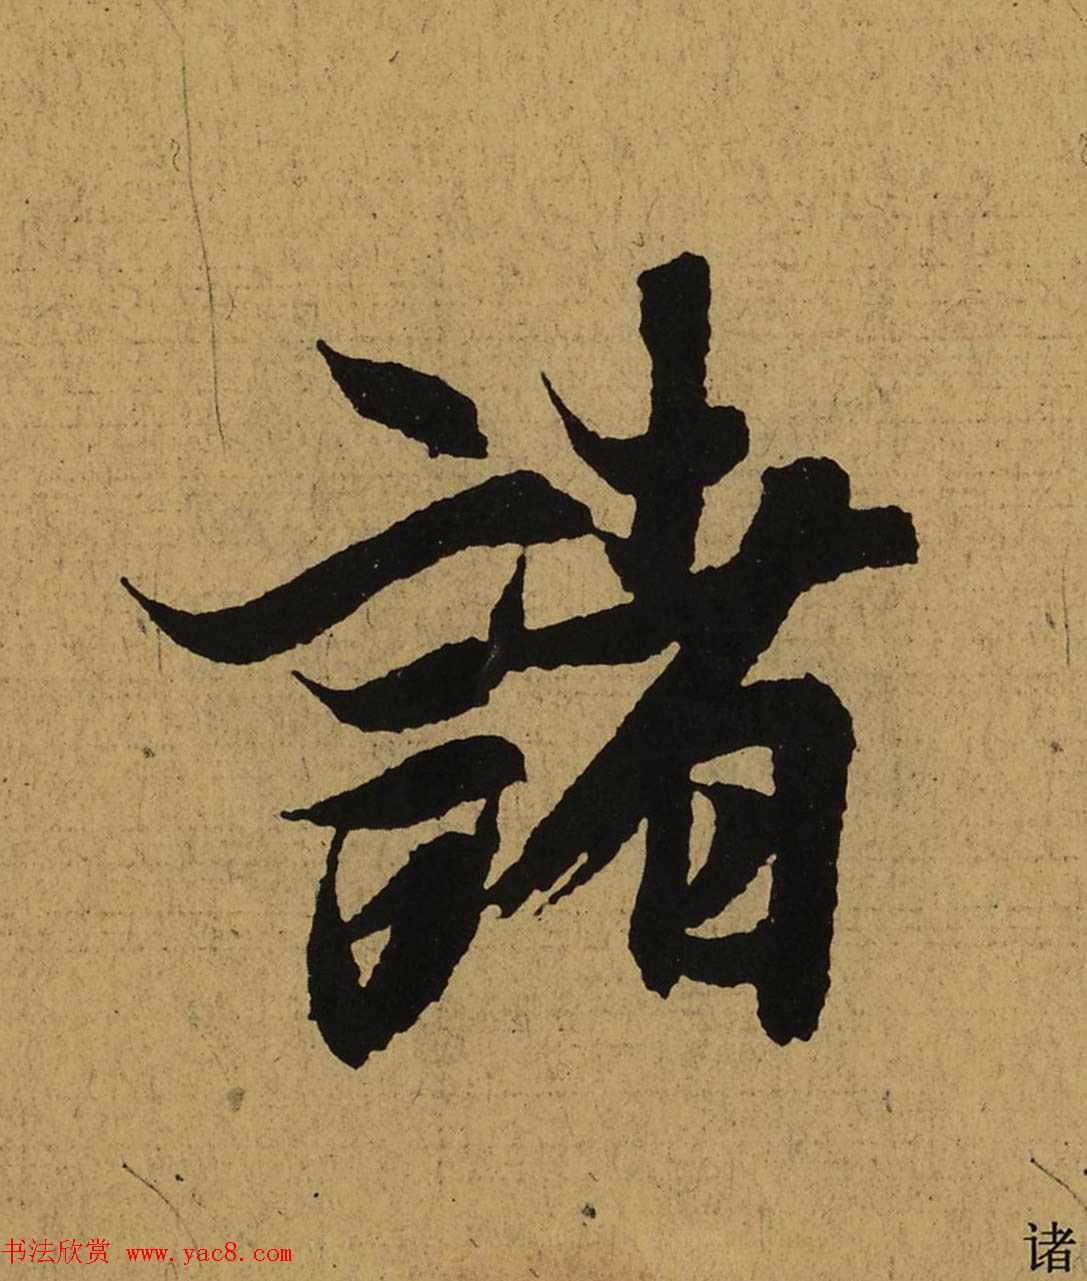 諸
诸
书法欣赏 www.yac8.com